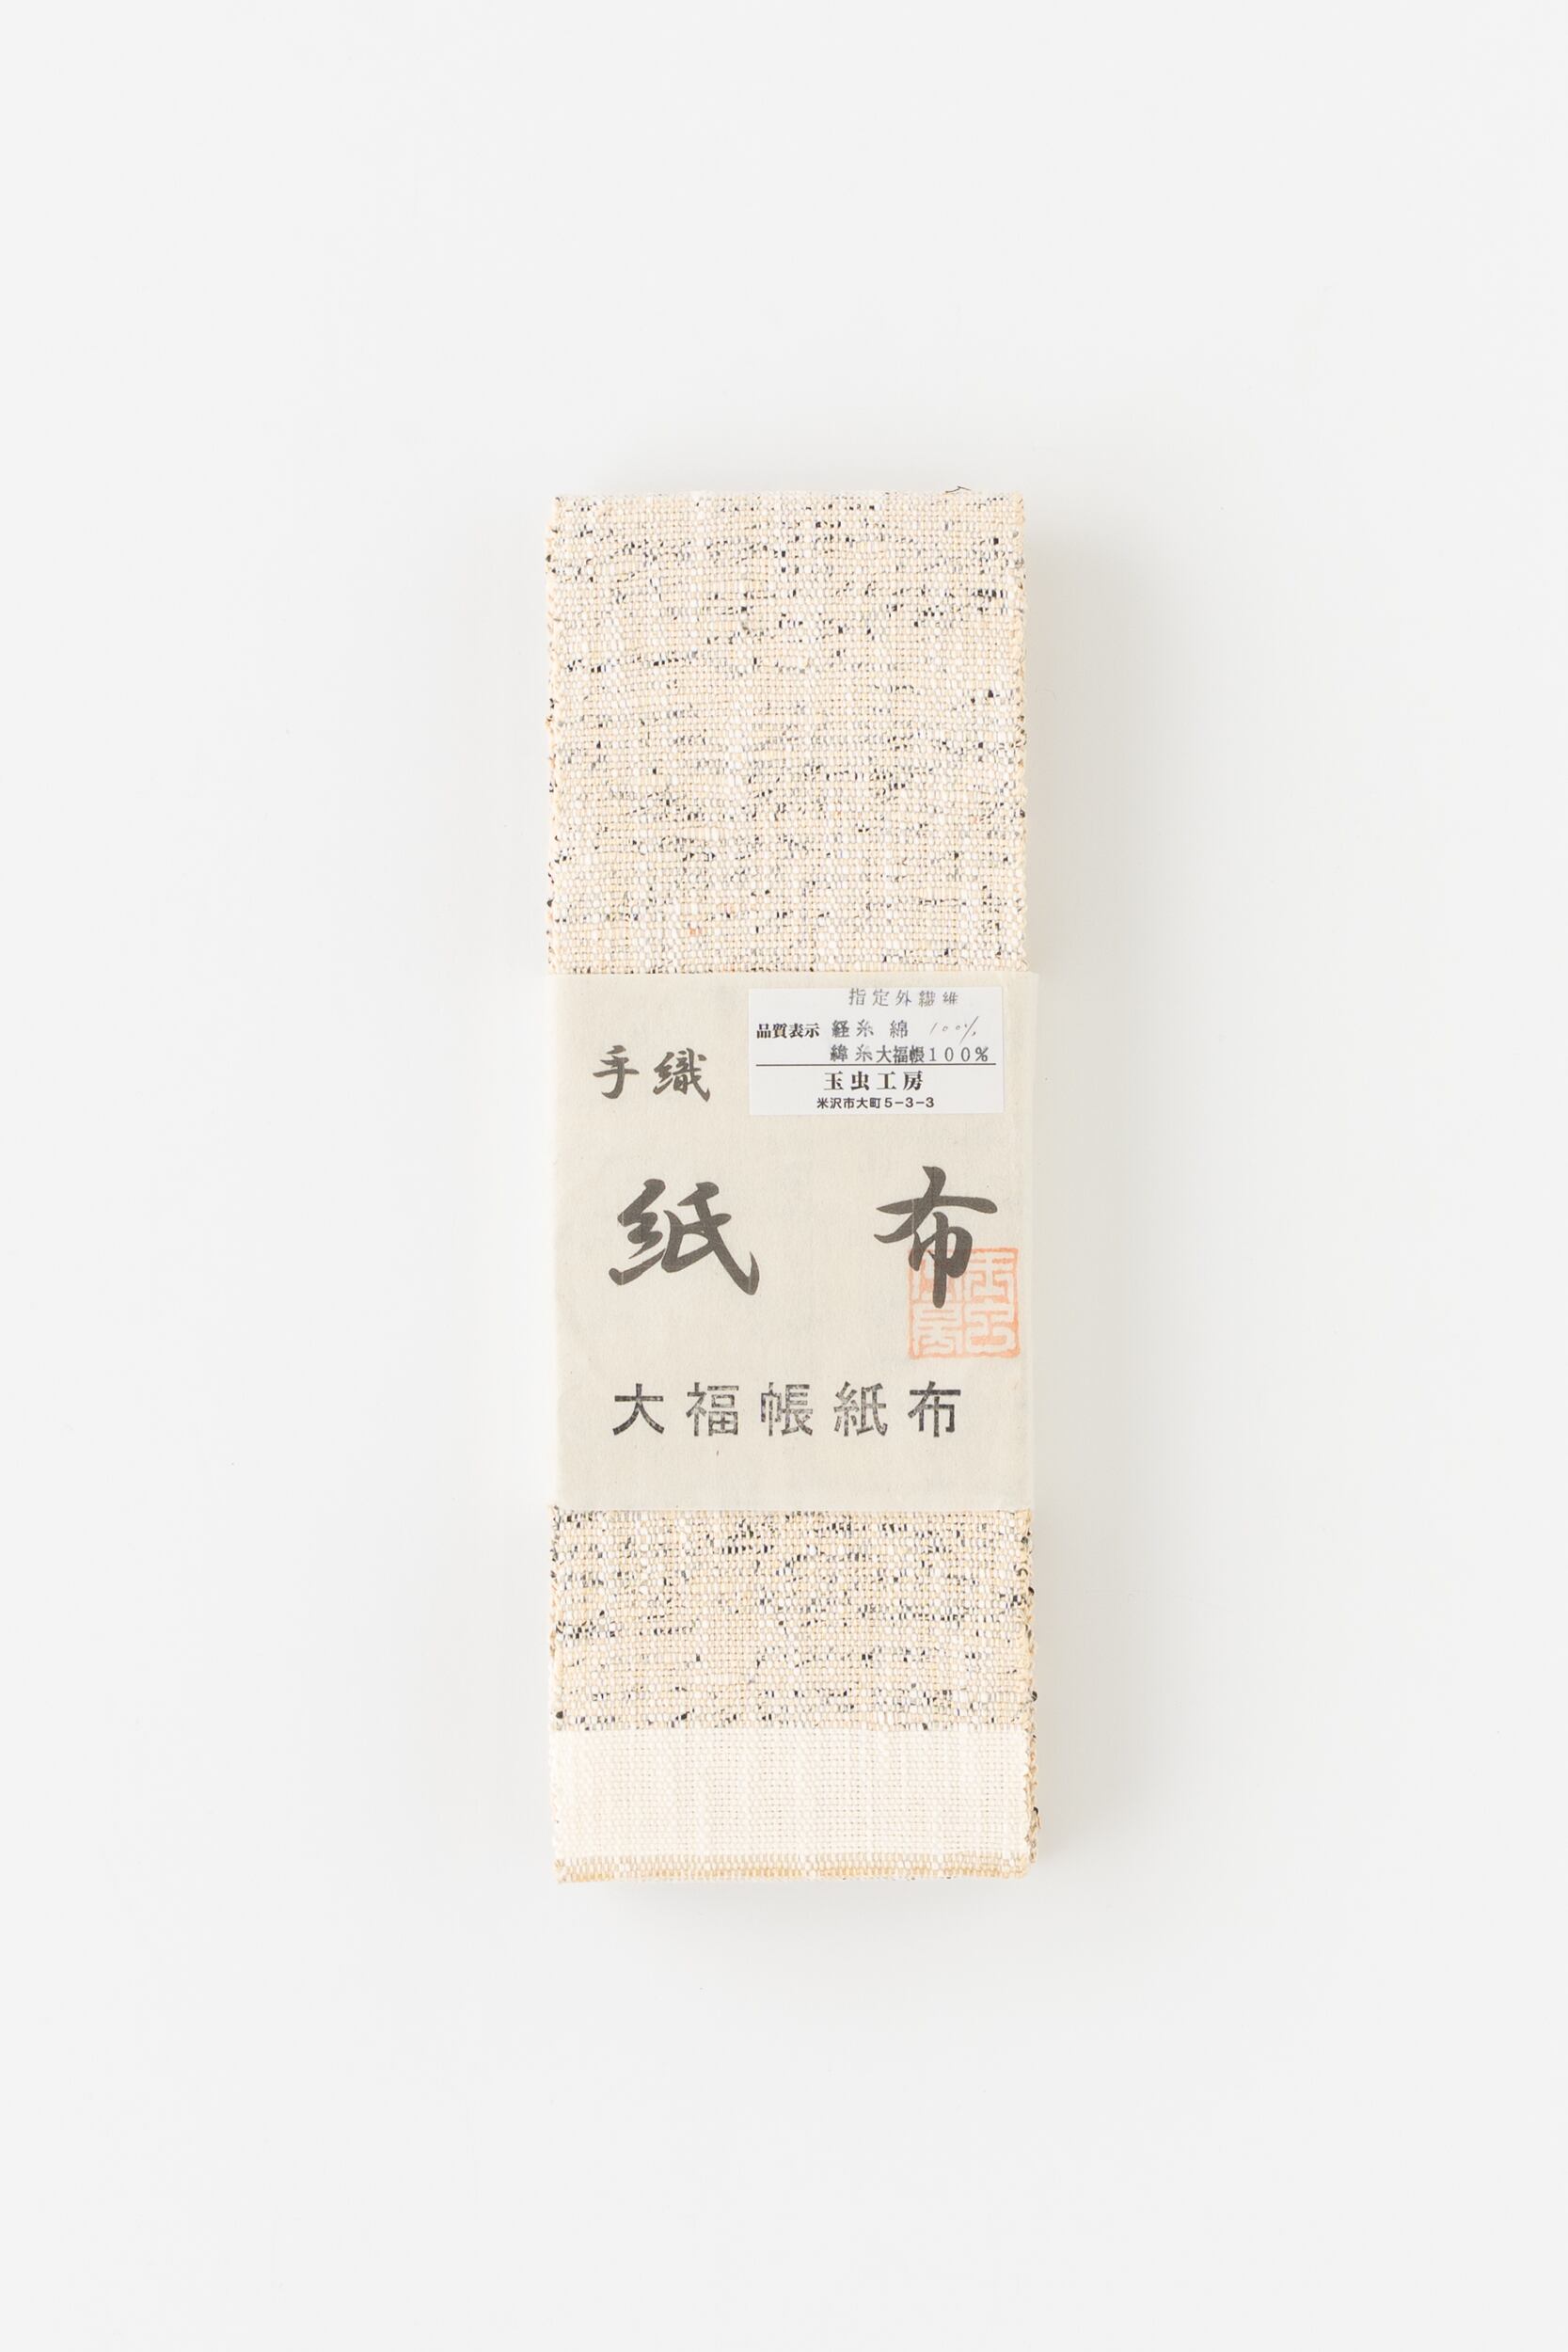 指定外繊維
品質表示 経糸 綿 100%
緯糸大福帳100%
玉虫工房
米沢市大町5-3-3
手織
紙布
大福帳紙布
玉虫工房